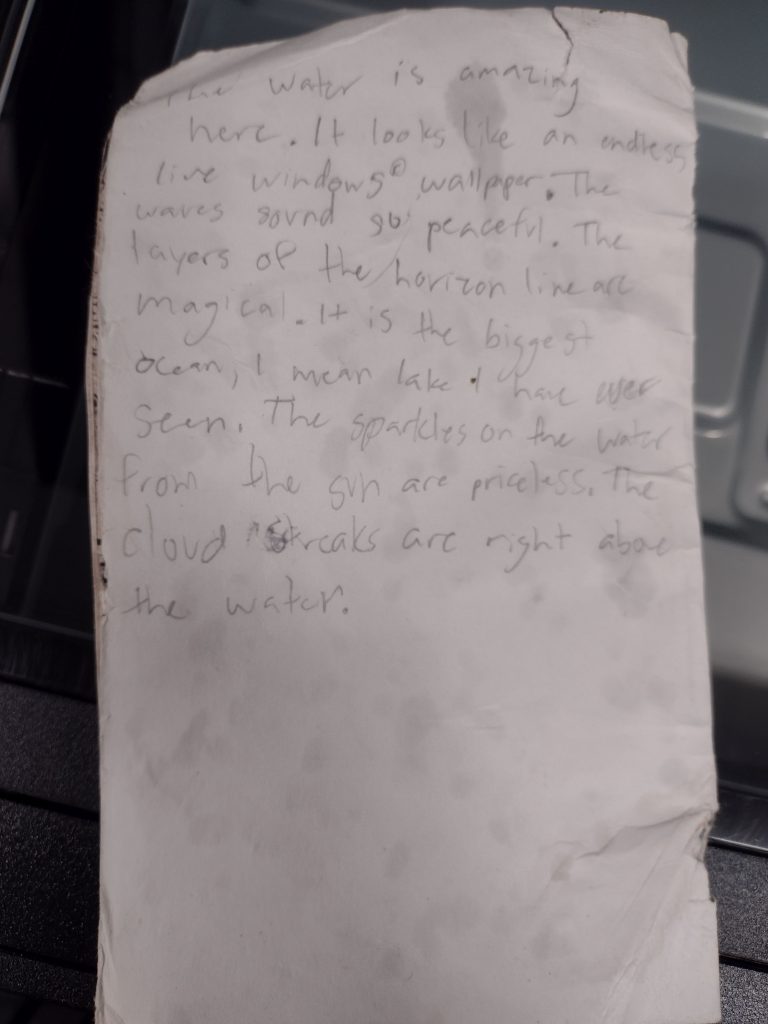 The water is amazing
here. It looks like an endless
live windows® wallpaper. The
waves sound so peaceful. The
layers of the horizon line are
magical. It is the biggest
ocean, I mean lake I have ever
seen. The sparkles on the water
from the sun are priceless. The
cloud streaks are right above
the water.